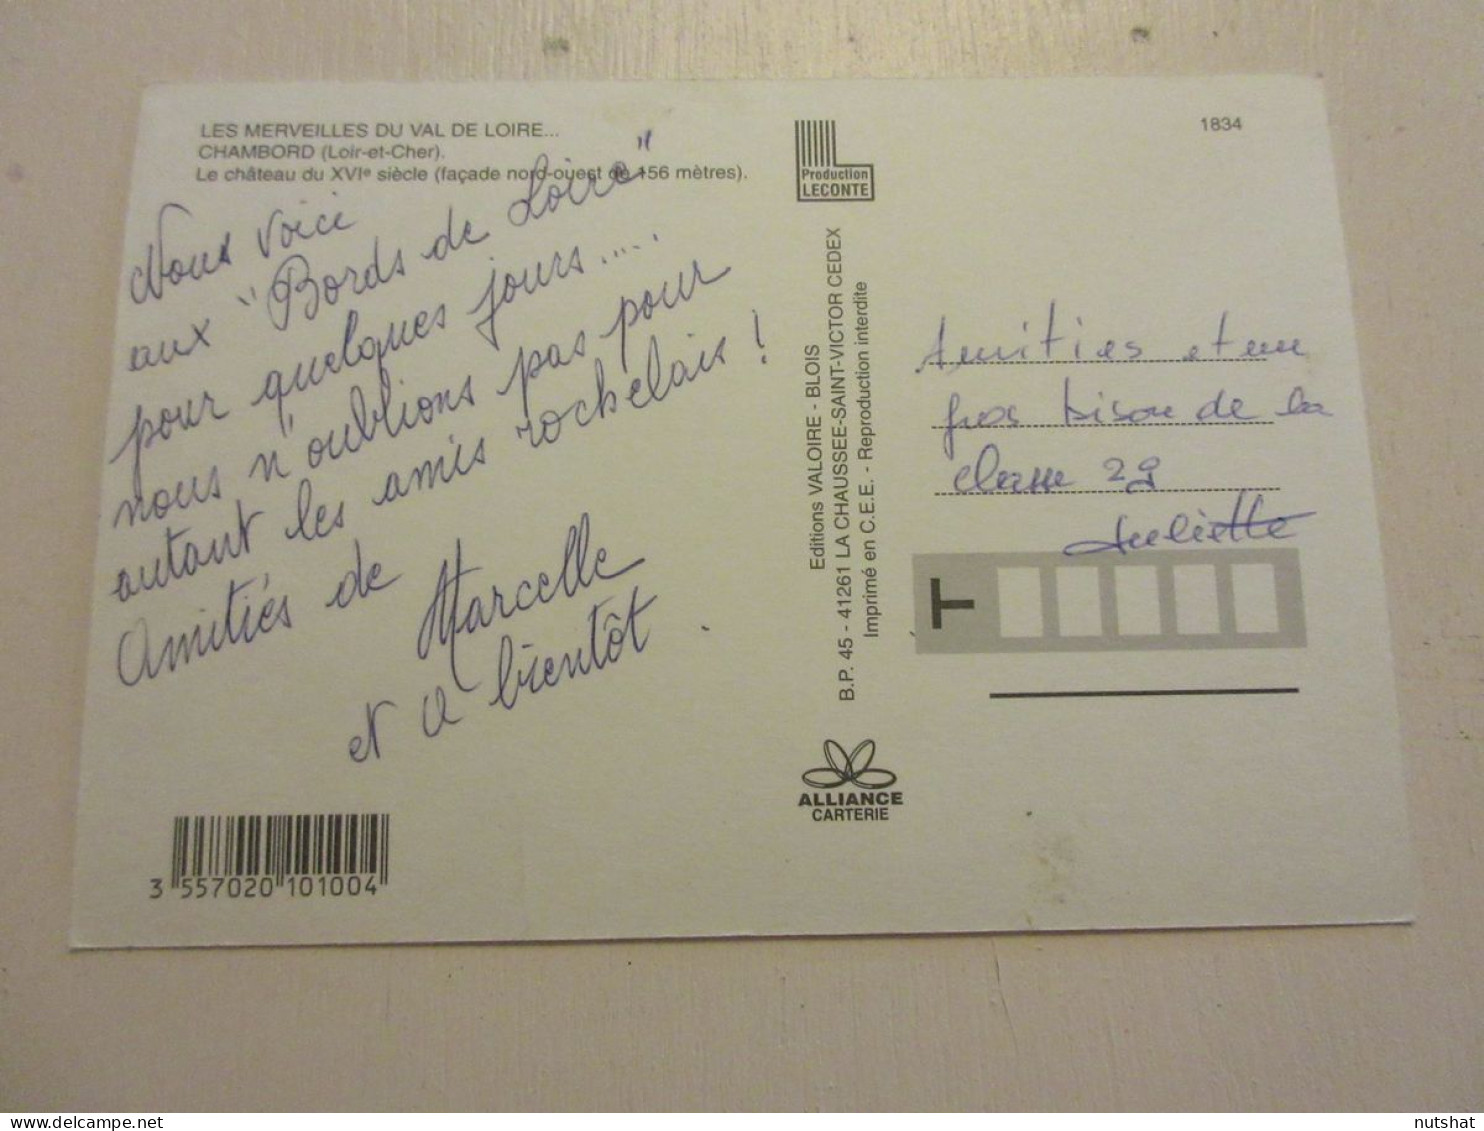 LES MERVEILLES DU VAL DE LOIRE...
CHAMBORD (Loir-et-Cher).
Le château du XVIe siècle (façade nord-ouest de 156 mètres).
Nous voici
aux "Bords de Loire"
pour quelques jours.....
nous n'oublions pas pour
autant les amis rochelais !
Amitiés de
Marcelle
et a bientôt.
3 557020 101004
Production
LECONTE
Editions VALOIRE - BLOIS
B.P. 45 - 41261 LA CHAUSSEE-SAINT-VICTOR CEDEX
Imprimé en C.E.E. - Reproduction interdite
ALLIANCE
CARTERIE
1834
Amitiés et un
gros bisou de la
classe 29
Juliette
T
nutshat